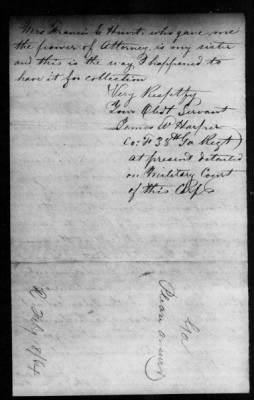 Mrs Francis E Hunt, who gave me
the power of Attorney, is my sister
and this is the way, I happened to
have it for collection
Very Respetfy
Your Obdt Servant
James W Harper
Co: F. 38th Ga Regt)
at present detailed
on Military Court
of this Corps
Ga
R Feby 8/64